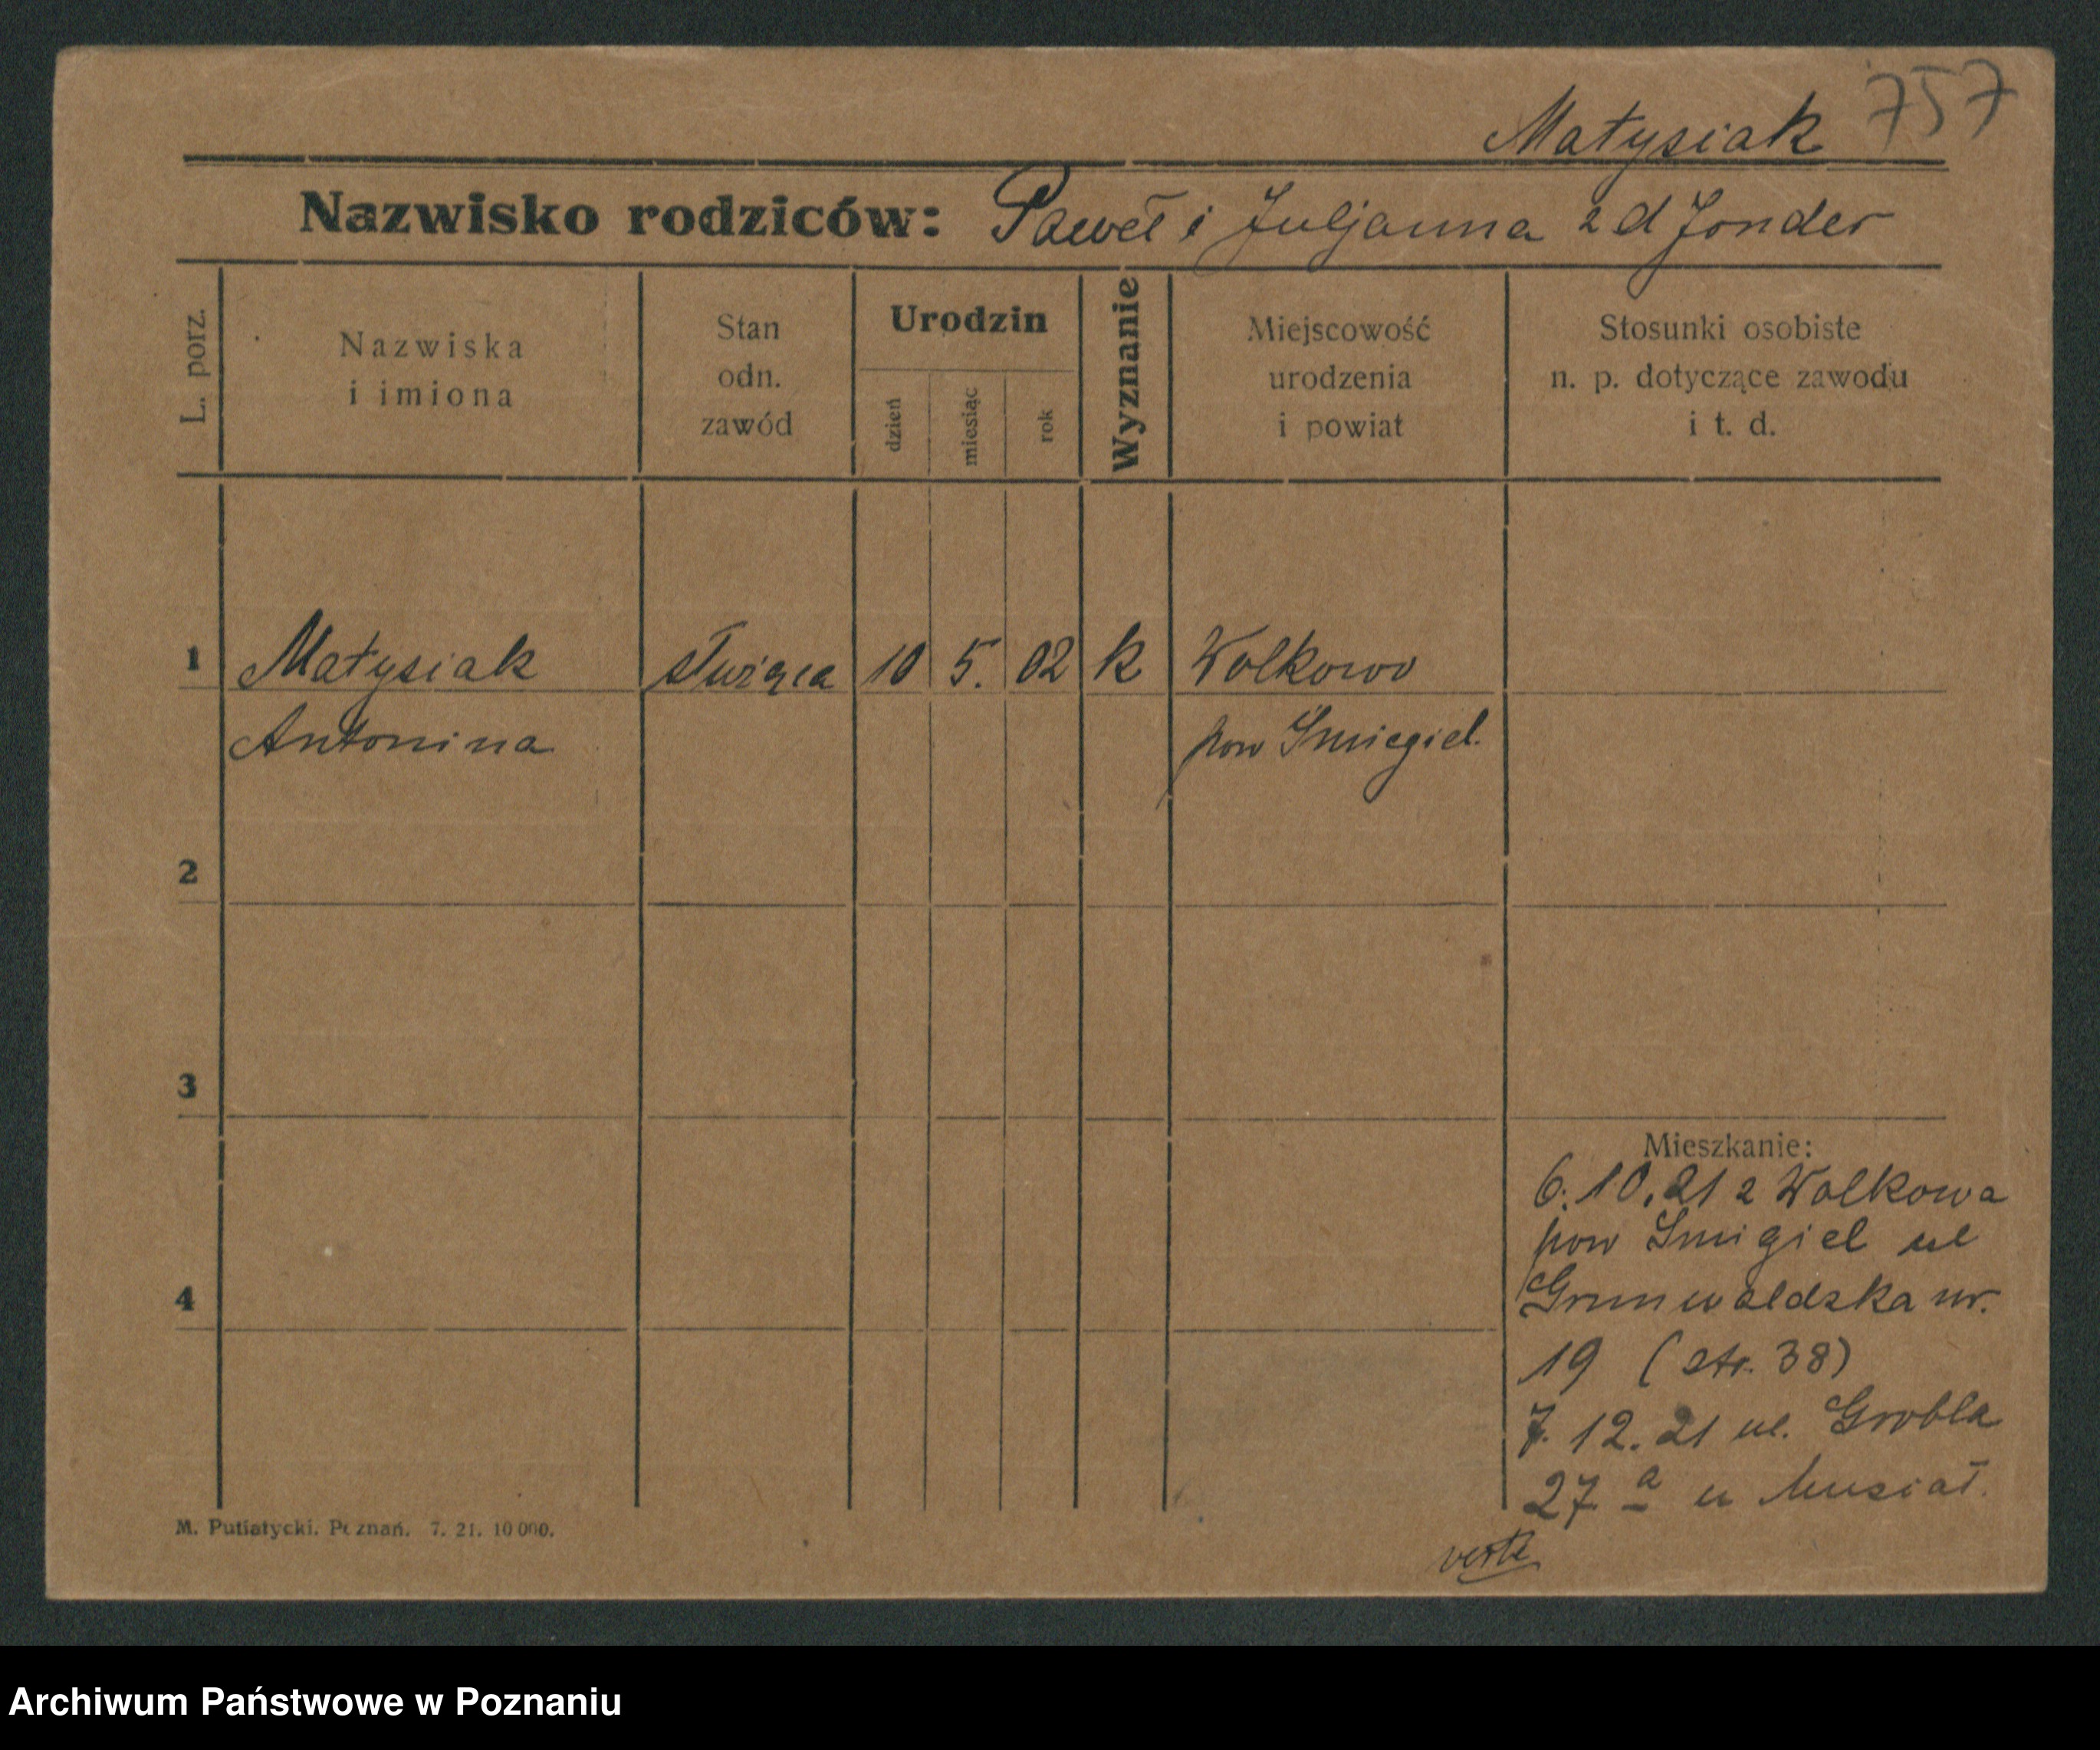 757
Matysiak
Nazwisko rodziców: Paweł i Juljanna z d Jonder
L. porz.
Nazwiska
i imiona
Stan
odn.
zawód
Urodzin
dzień
miesiąc
rok
Wyznanie
Miejscowość
urodzenia
i powiat
Stosunki osobiste
n. p. dotyczące zawodu
i t. d.
1 Matysiak służąca 10 5. 02 k Wolkowo
Antonina pow Śmiegiel.
2
3
4
Mieszkanie:
6. 10. 21 z Wolkowa
pow Śmigiel ul
Grunwaldzka nr.
19 (str. 38)
7. 12. 21 ul. Grobla
27 a u Musiał.
verte
M. Putiatycki. Poznań. 7. 21. 10 000.
Archiwum Państwowe w Poznaniu